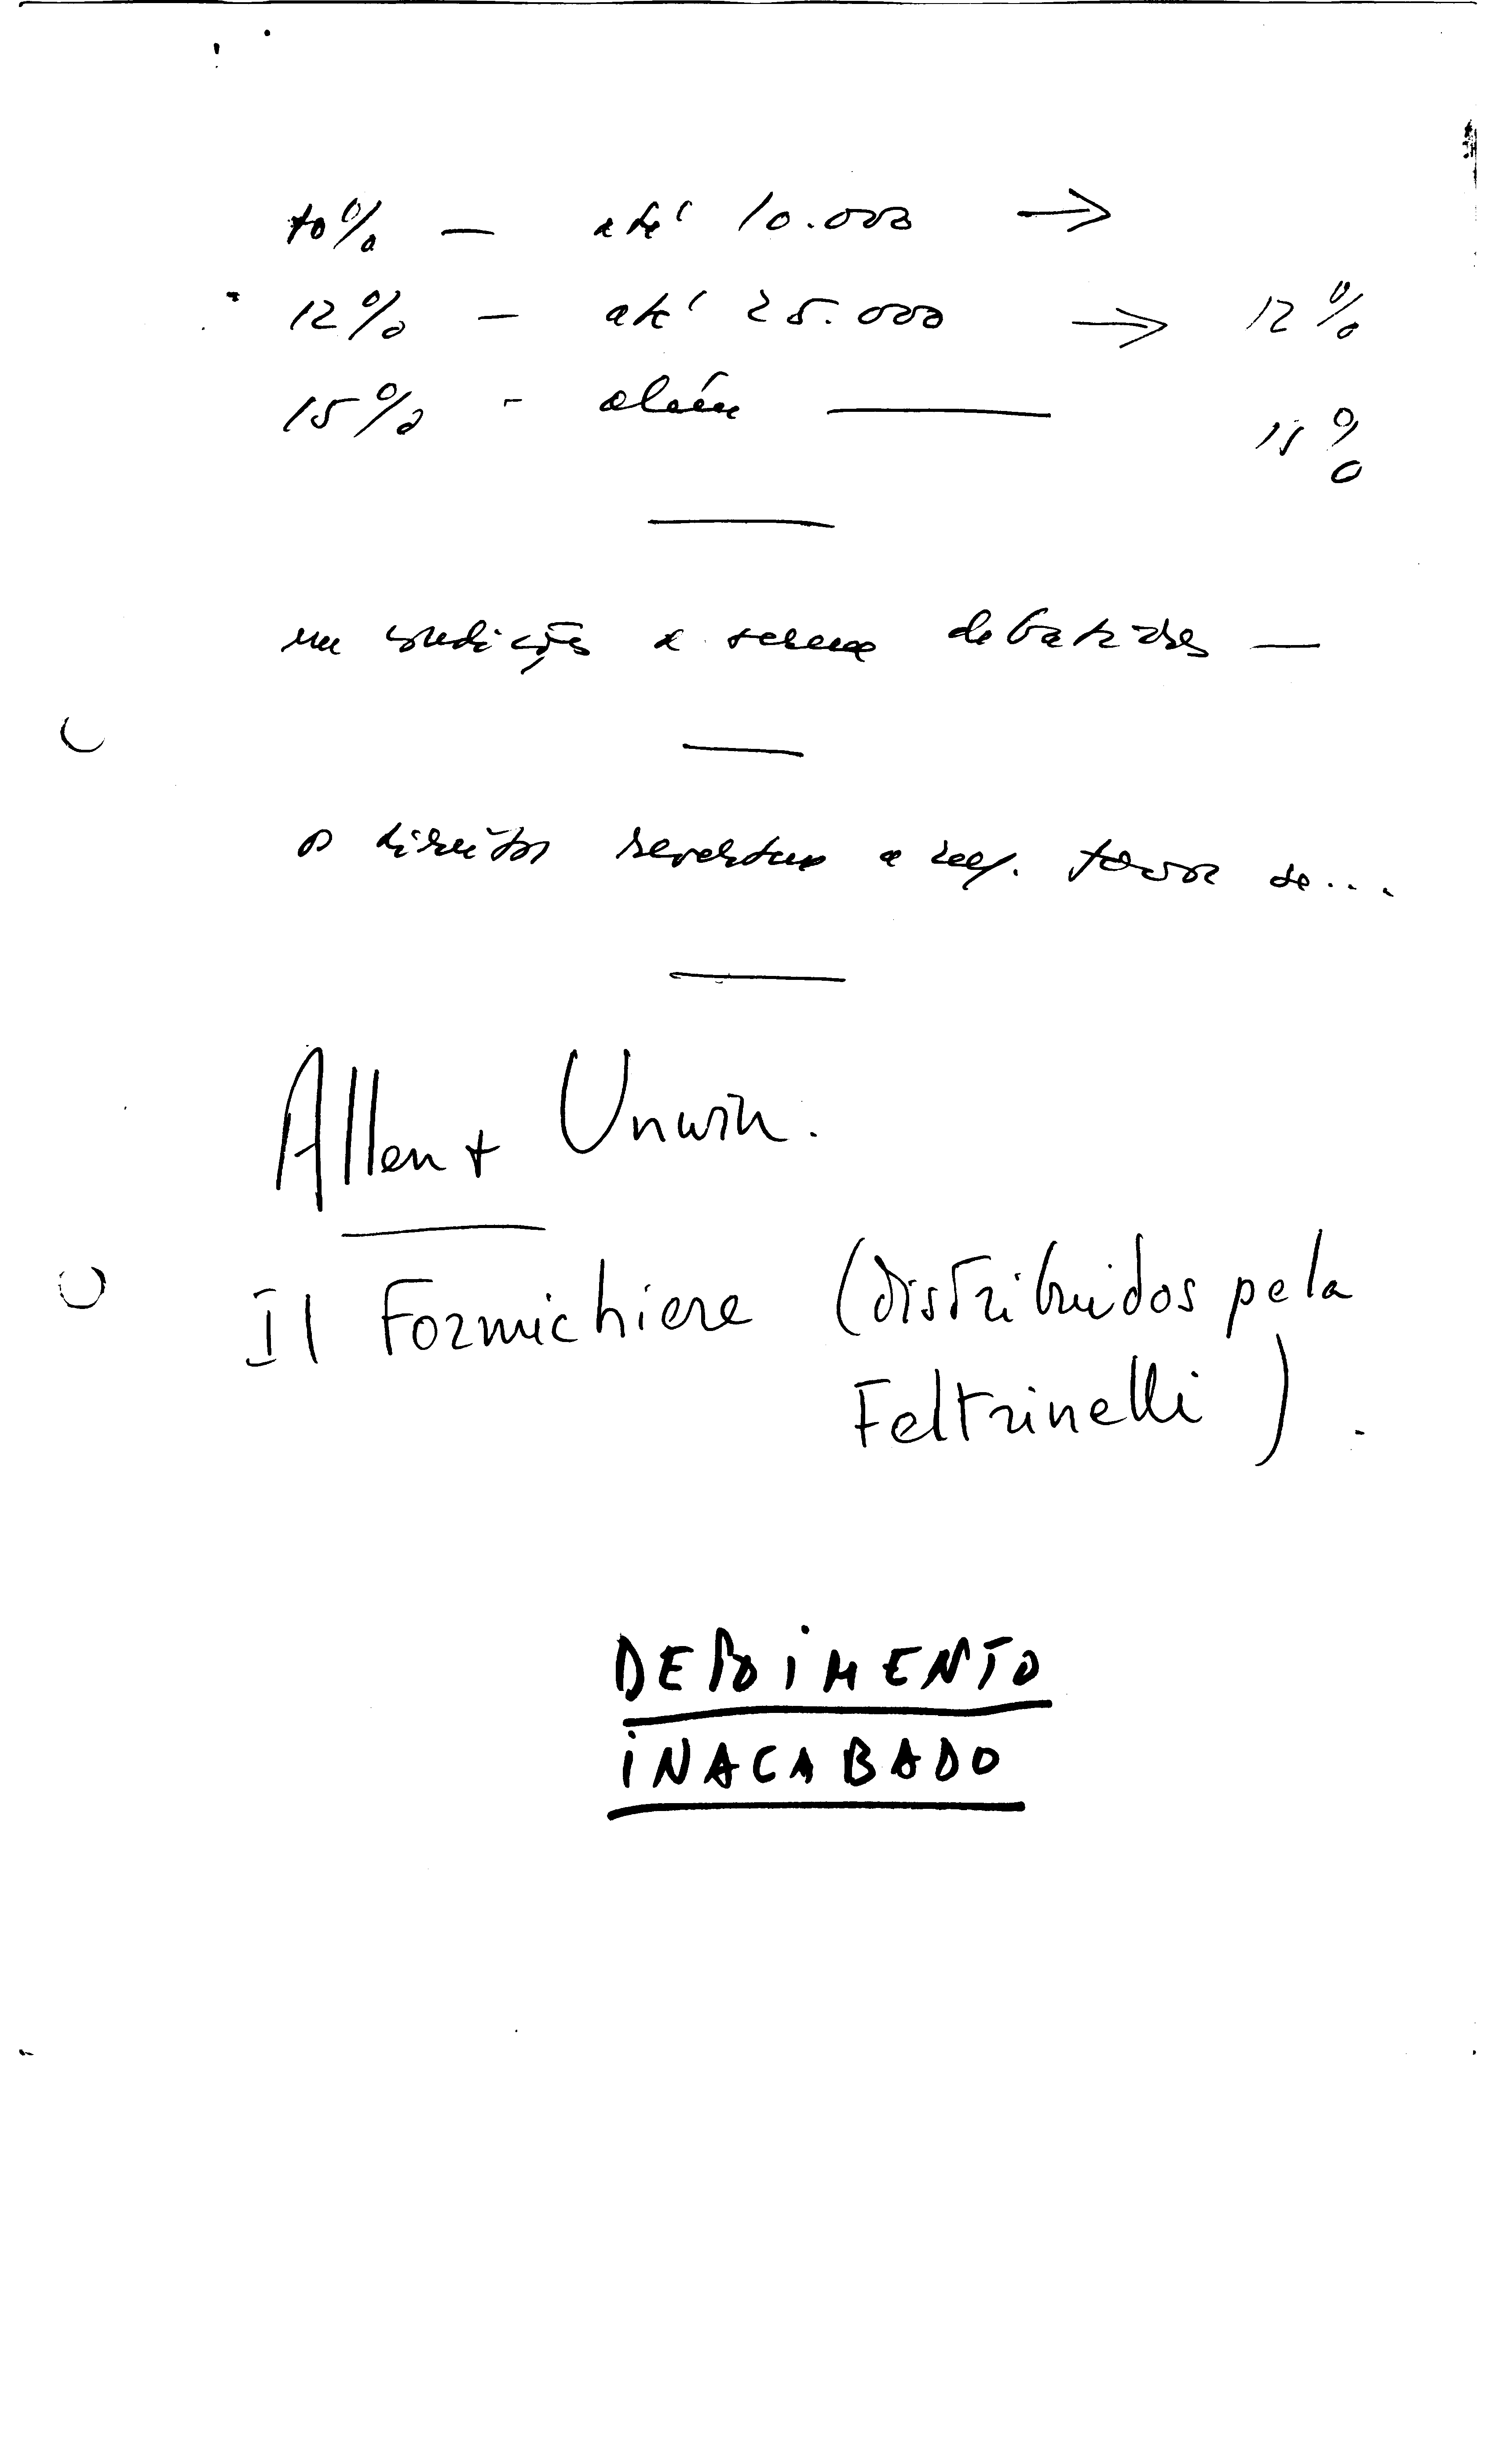 10% — até 10.000 →
12% — até 25.000 → 12%
15% - além —— 15%
em condições a serem debatidas —
os direitos revertem a favor de...
Allen + Unwin.
Il Formichiere (distribuidos pela
Feltrinelli).
DEPOIMENTO
INACABADO